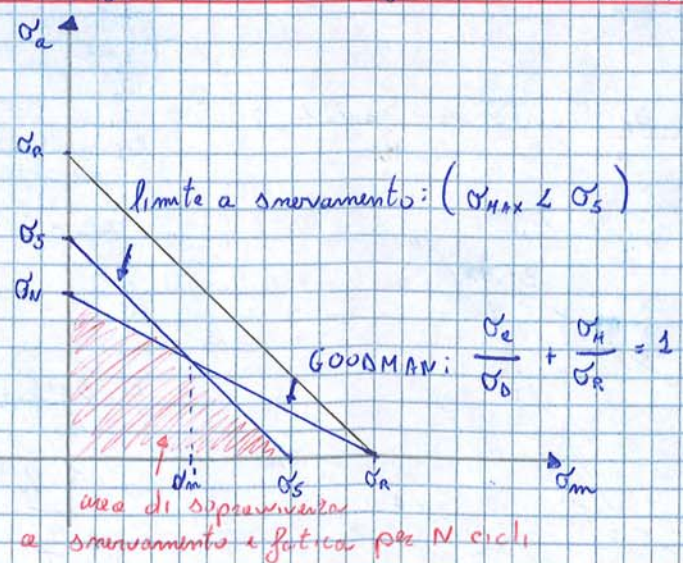 σa
σR
limite a snervamento: (σMAX < σS)
σS
σN
GOODMAN: σa/σD + σM/σR = 1
σm̄ σS σR σm
area di sopravvivenza
a snervamento e fatica per N cicli